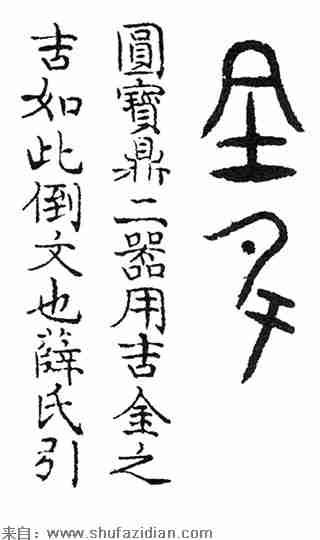 圓寶鼎二器用吉金之
吉如此倒文也薛氏引
来自：www.shufazidian.com